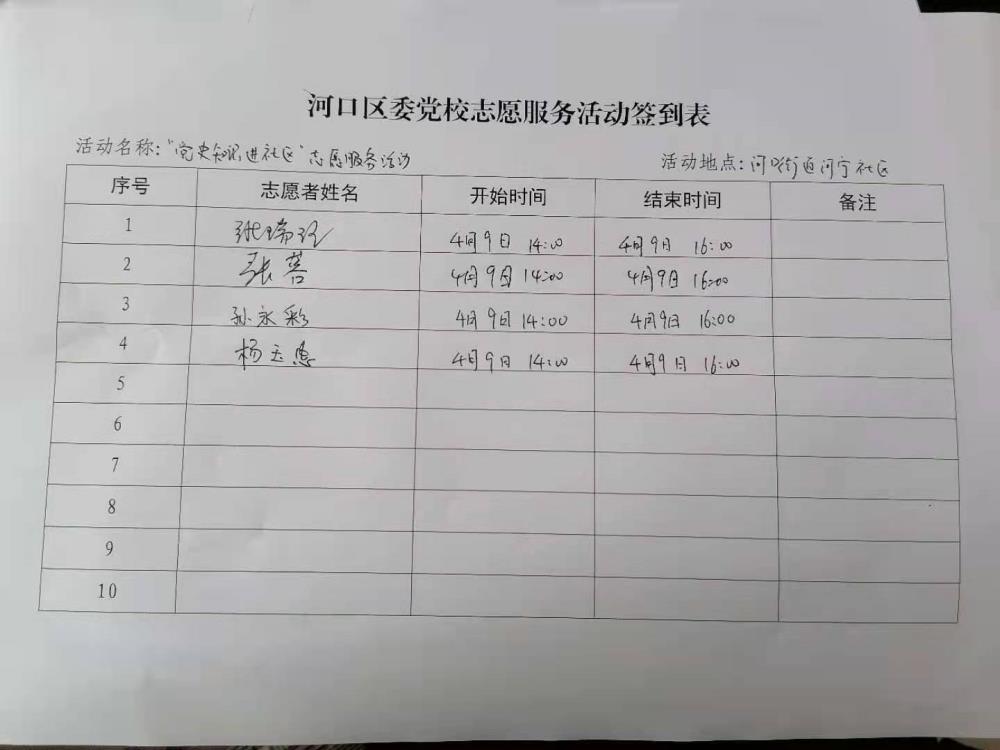 河口区委党校志愿服务活动签到表
活动名称："党史知识进社区"志愿服务活动 活动地点：河口街道河宁社区
序号 志愿者姓名 开始时间 结束时间 备注
1 张瑞 4月9日 14:00 4月9日 16:00
2 张蓉 4月9日 14:00 4月9日 16:00
3 孙永彩 4月9日 14:00 4月9日 16:00
4 杨玉惠 4月9日 14:00 4月9日 16:00
5
6
7
8
9
10